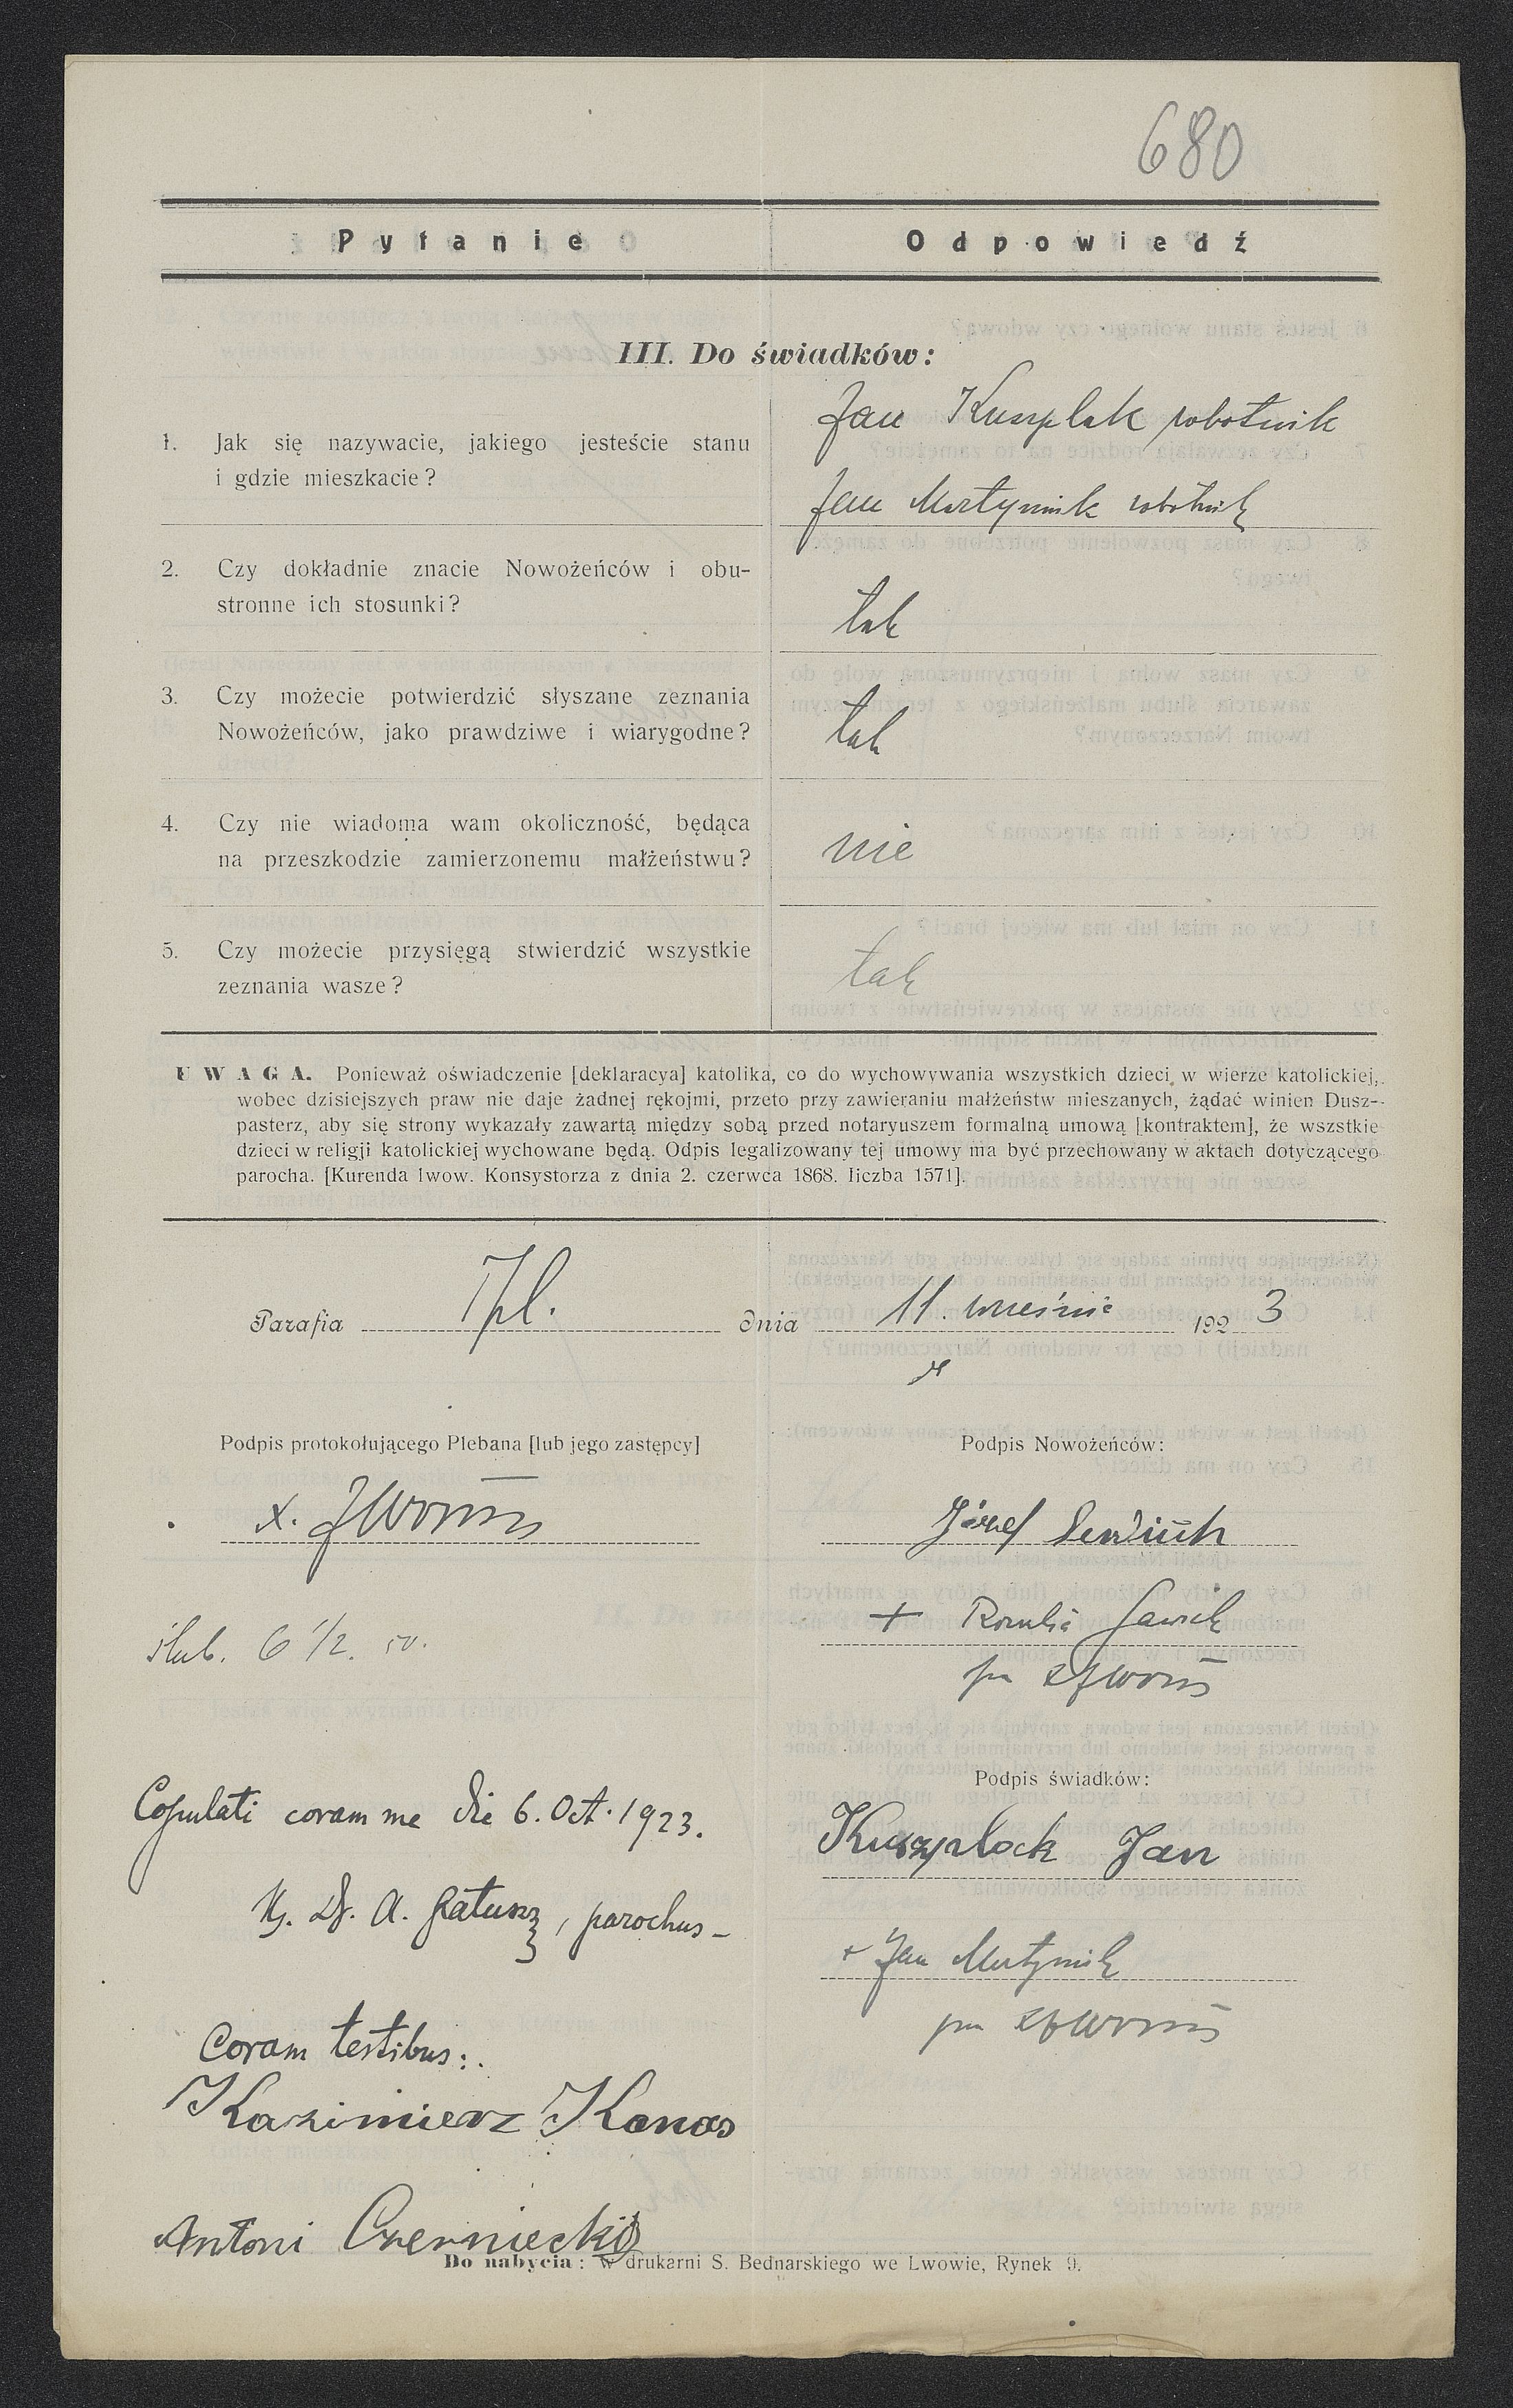 680
Pytanie Odpowiedź
III. Do świadków:
1. Jak się nazywacie, jakiego jesteście stanu
i gdzie mieszkacie?
Jan Kuszplak robotnik
Jan Martyniuk robotnik
2. Czy dokładnie znacie Nowożeńców i obu-
stronne ich stosunki?
tak
3. Czy możecie potwierdzić słyszane zeznania
Nowożeńców, jako prawdziwe i wiarygodne?
tak
4. Czy nie wiadoma wam okoliczność, będąca
na przeszkodzie zamierzonemu małżeństwu?
nie
5. Czy możecie przysięgą stwierdzić wszystkie
zeznania wasze?
tak
UWAGA. Ponieważ oświadczenie [deklaracya] katolika, co do wychowywania wszystkich dzieci w wierze katolickiej,
wobec dzisiejszych praw nie daje żadnej rękojmi, przeto przy zawieraniu małżeństw mieszanych, żądać winien Dusz-
pasterz, aby się strony wykazały zawartą między sobą przed notaryuszem formalną umową [kontraktem], że wszstkie
dzieci w religji katolickiej wychowane będą. Odpis legalizowany tej umowy ma być przechowany w aktach dotyczącego
parocha. [Kurenda lwow. Konsystorza z dnia 2. czerwca 1868. liczba 1571].
Parafia dnia 11. września 1923
Podpis protokołującego Plebana [lub jego zastępcy]
Podpis Nowożeńców:
x.
Józef
+ Rozalia Gawik
ślub. 6 1/2
Podpis świadków:
Copulati coram me die 6. Oct. 1923.
Kuszplock Jan
Ks. Dr. A. Ratusz, parochus
+ Jan Martyniuk
Coram testibus:
Kazimierz Konas
Antoni Czerniecki
Do nabycia: w drukarni S. Bednarskiego we Lwowie, Rynek 9.